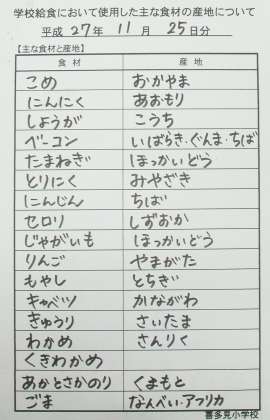 学校給食において使用した主な食材の産地について
平成 27年 11月 25日分
【主な食材と産地】
食材 産地
こめ おかやま
にんにく あおもり
しょうが こうち
ベーコン いばらき・ぐんま・ちば
たまねぎ ほっかいどう
とりにく みやざき
にんじん ちば
セロリ しずおか
じゃがいも ほっかいどう
りんご やまがた
もやし とちぎ
キャベツ かながわ
きゅうり さいたま
わかめ さんりく
くきわかめ
あかとさかのり くまもと
ごま なんべい・アフリカ
喜多見小学校